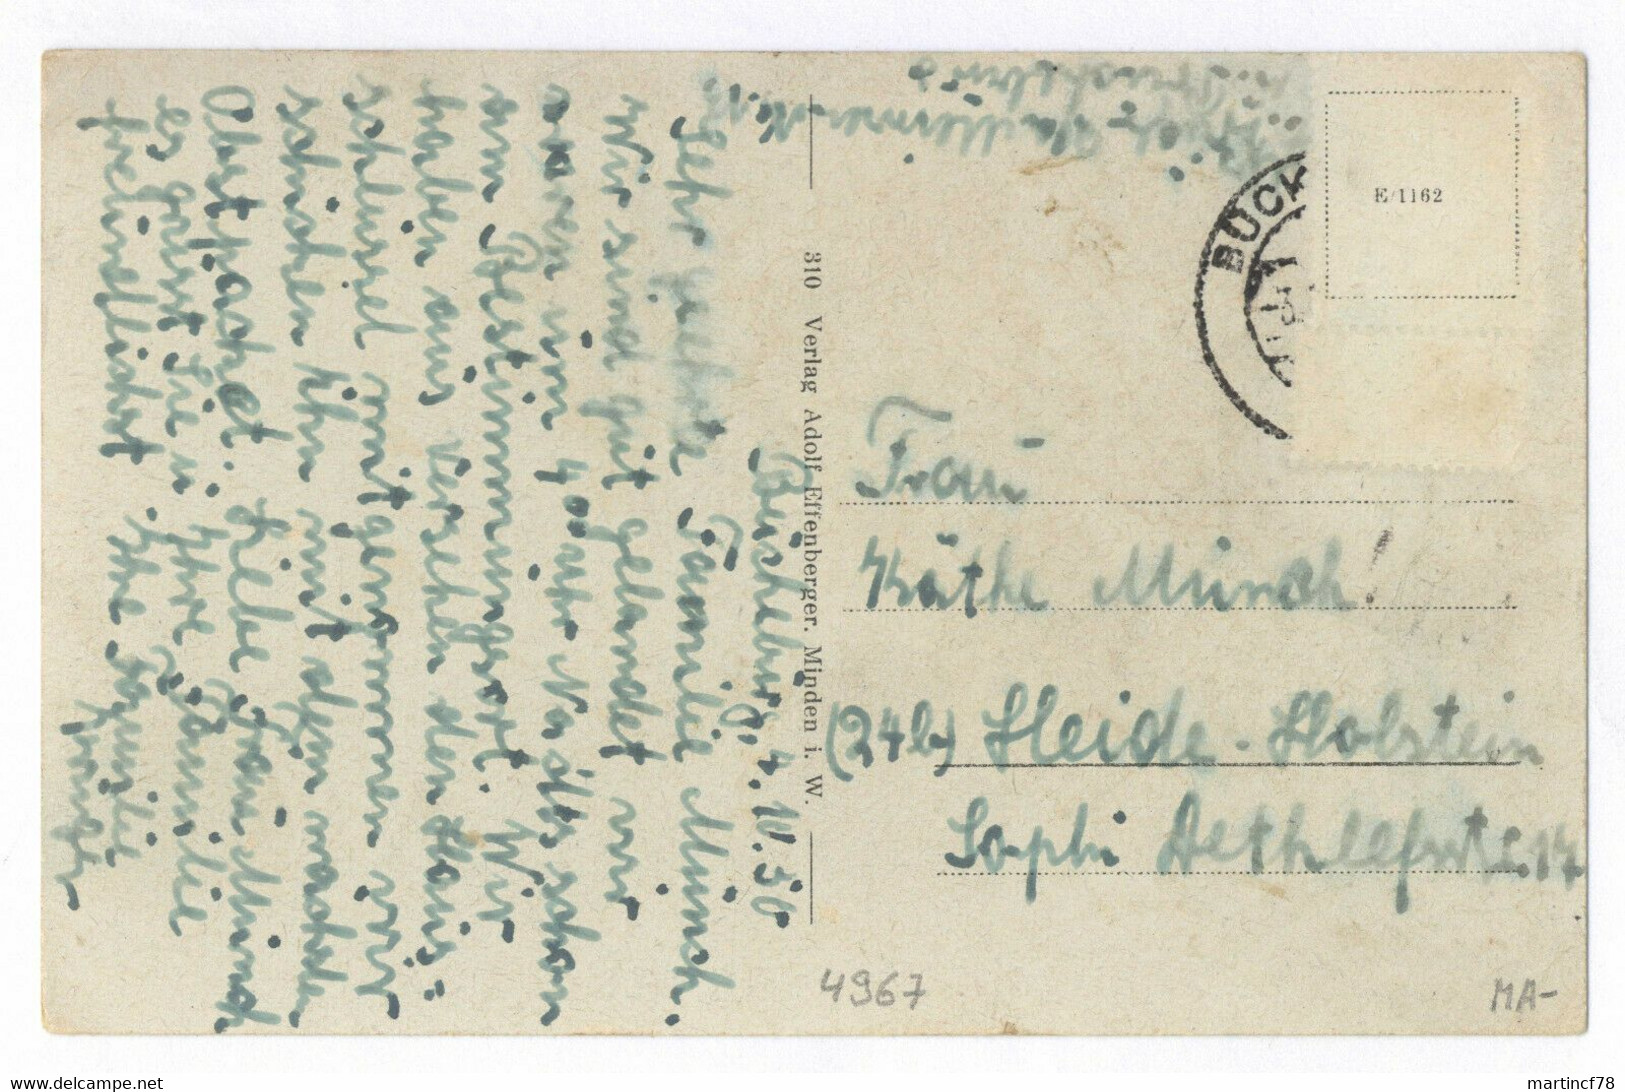 Bückeburg, 4.10.50
Sehr geehrte Familie Münch.
Wir sind gut gelandet wir
waren um 4 Uhr schon
am Bestimmungsort. Wir
haben aus versehen den Haus=
schlüssel mitgenommen wir
schicken Ihn mit dem nächsten
Obstpacket. Liebe Frau Münch
es grüsst Sie u. Ihre Familie
freundlichst. Ihre Familie
310 Verlag Adolf Effenberger. Minden i. W.
E/1162
BÜCK
Frau
Käthe Münch!
(24b) Heide-Holstein
14
4967
MA-
martincf78
www.delcampe.net